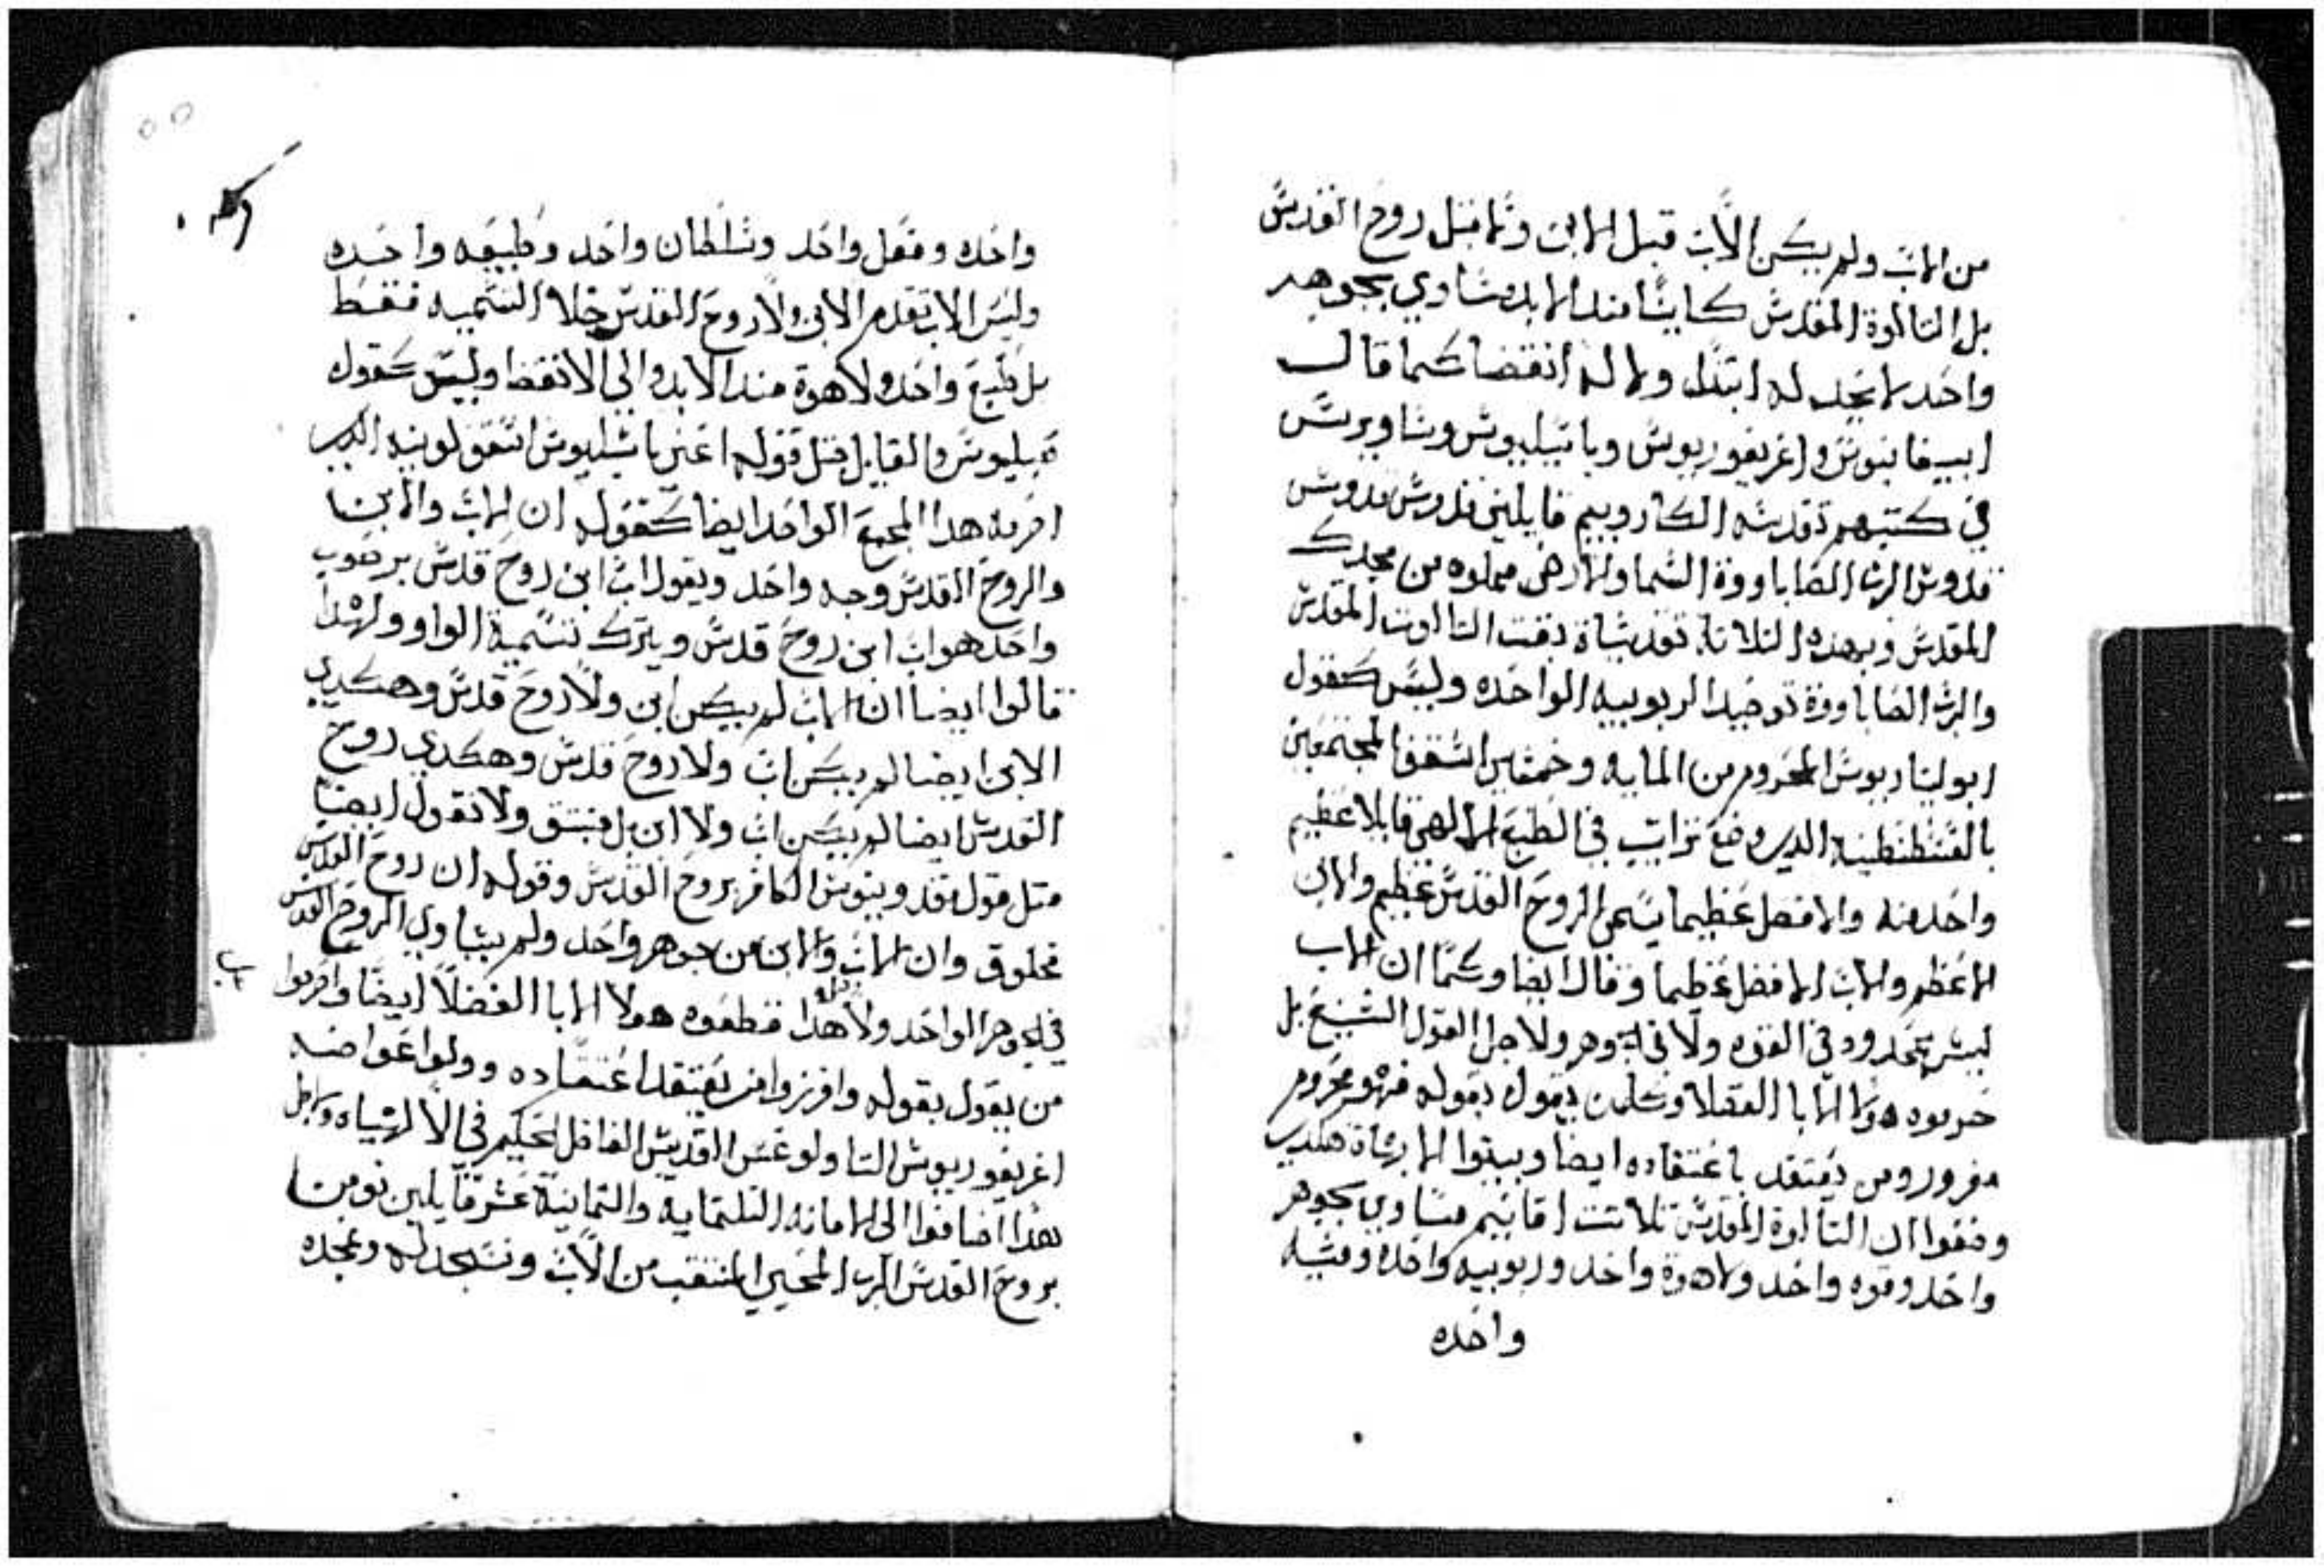 من الاب ولم يكن الاب قبل الابن ولا قبل روح القدس
بل التالوة المقدس كاينا مند الابد مساوي بجوهر
واحد لا نجد له ابتدا ولا له انقضا كما قال
ابيفانيوس واغريغوريوس وباسيليوس وساويرس
في كتبهم تقدسه الكاروبيم قايلين قدوس قدوس
قدوس الرب الصاباووة السما والارض مملوه من مجدك
المقدس وبهذه التلاتة تقديساة نعت التالوت المقدس
والرب الصاباووة توحيد الربوبيه الواحده وليس كقول
ابوليناريوس المحروم من المايه وخمسين اسقف المجتمعين
بالقسطنطينيه الدي وضع تراتيب في الطبع الالاهي قايلا عظيم
واحد منه والافضل عظيما يسمى الروح القدس عظيم والابن
الاعظم والاب الافضل عظيما وقال ايضا وكما ان الاب
ليس بمحدود في القوه ولا في الجوهر ولاجل القول الشنيع بل
حرموه هولا الابا الفضلا وكلمن يقول بقوله فهو محروم
مفروز ومن يعتقد باعتقاده ايضا وبيتوا الابرشاة هكدي
وضعوا ان التالوة المقدس تلاتت اقانيم مساوي بجوهر
واحد وقوه واحد ولاهوة واحد وربوبيه واحده ومشيه
واحده
واحده وفعل واحد وسلطان واحد وطبيعه واحده
وليس الاب تقدم الابن ولا روح القدس خلا التسميه فقط
بل طبع واحد ولاهوة مند الابد والى الانقضا وليس كقول
اخر به هدا المجمع الواحد ايضا كقوله ان الاب والابن
والروح القدس وجه واحد ويقول اب ابن روح قدس
واحد هو اب ابن روح قدس ويترك تسمية الواو ولهدا
قالوا ايضا ان الاب لم يكن ابن ولا روح قدس وهكدي
الابن ايضا لم يكن اب ولا روح قدس وهكدي روح
القدس ايضا لم يكن اب ولا ابن بل منبتق ولا نقول ايضا
متل قول مقدونيوس الكافر بروح القدس وقوله ان روح القدس
مخلوق وان الاب والابن من جوهر واحد ولم يساوي الروح القدس
في الجوهر الواحد ولاجل هدا قطعوه هولا الابا الفضلا ايضا واحرموا
من يقول بقوله وافرزوا من يعتقد اعتقاده وولوا عواضه
اغريغوريوس التاولوغس القديس الفاضل الحكيم في الالهياه ولاجل
هدا اضافوا الى الامانه التلتمايه والتمانية عشر قايلين نومن
بروح القدس الرب المحيي المنبتق من الاب ونسجد له ونمجده